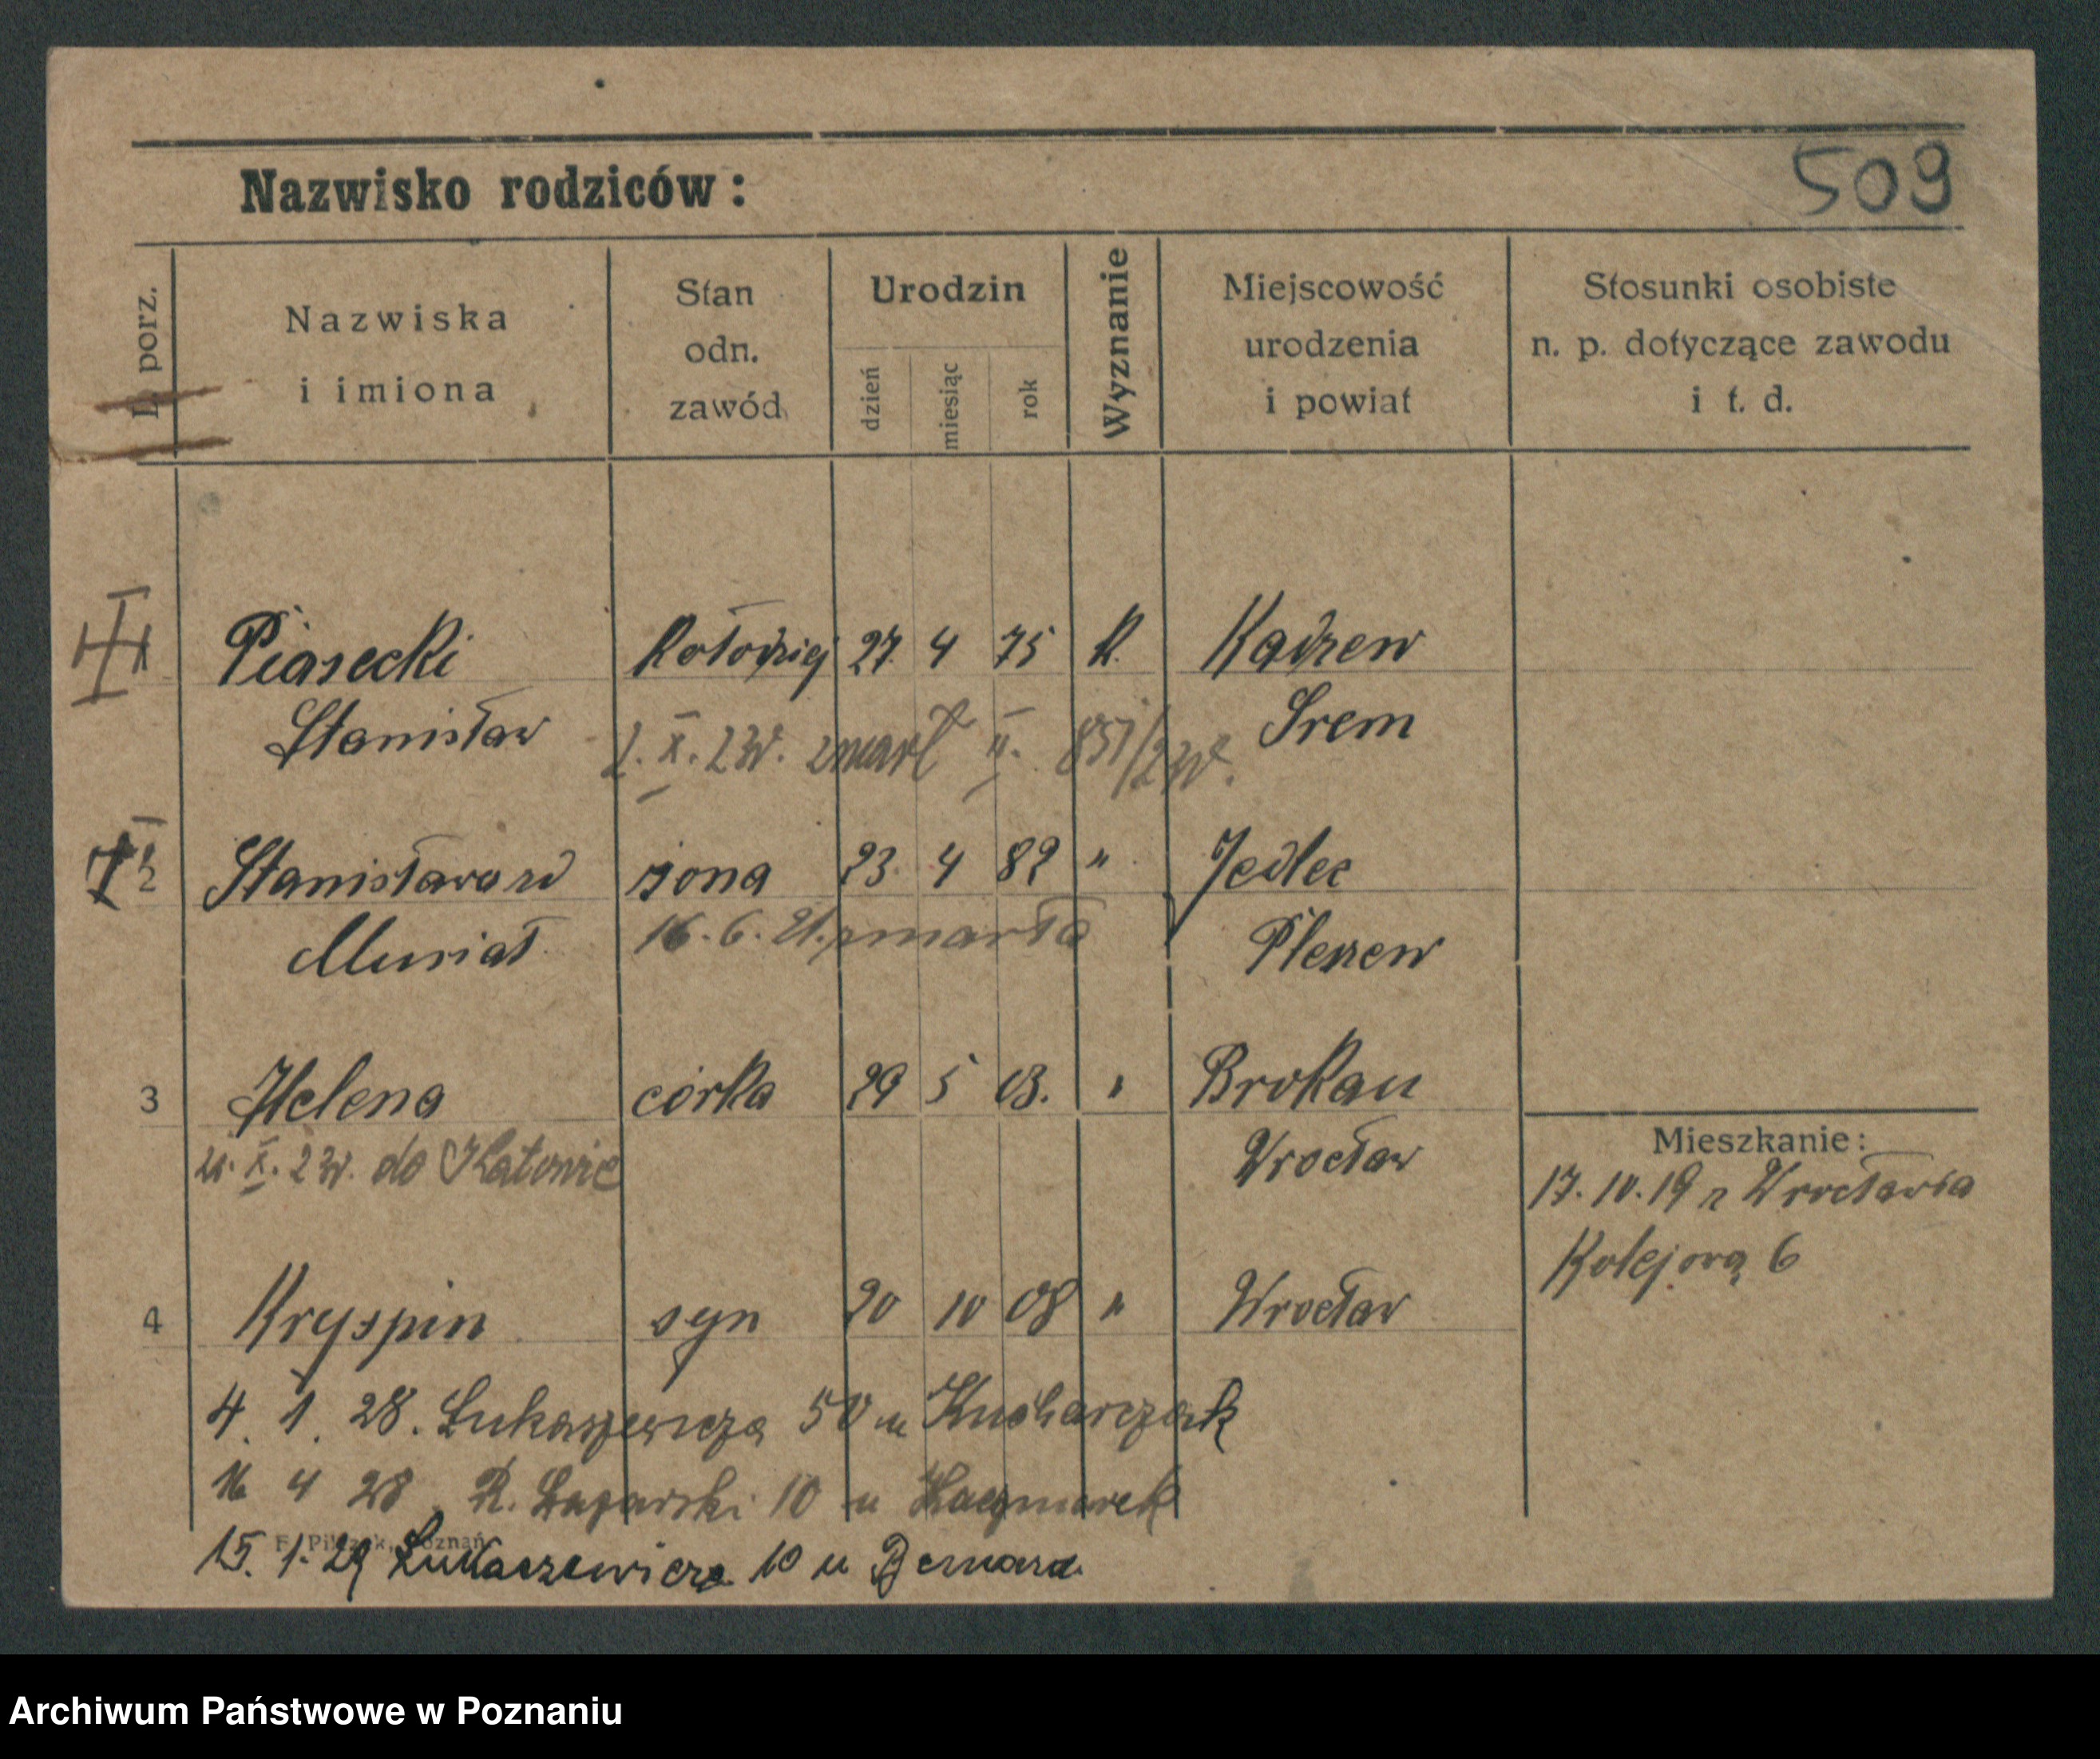 509
Nazwisko rodziców:
L. porz.
Nazwiska
i imiona
Stan
odn.
zawód
Urodzin
dzień
miesiąc
rok
Wyznanie
Miejscowość
urodzenia
i powiat
Stosunki osobiste
n. p. dotyczące zawodu
i t. d.
1 Piasecki Kołodziej 27. 4 75 K. Kadzew
Stanisław Srem
zmarł
2 Stanisława żona 23. 4 82 " Jedlec
Musiał 16. 6. 21. zmarła Pleszew
3 Helena córka 29 5 03. " Brokau
do Katowic Wrocław
Mieszkanie:
17. 10. 19 z Wrocławia
Kolejowa 6
4 Kryspin syn 20 10 08 " Wrocław
4. 1. 28. Łukaszewicza 50 u Kucharczak
16 4 28. R. Łazarski 10 u Kaczmarek
Poznań
15. 1. 29 Łukaszewicza 10 u Bernard
Archiwum Państwowe w Poznaniu